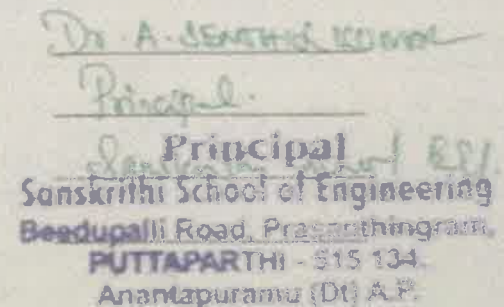 Dr. A. SENTHIL KUMAR
Principal.
Principal
Sanskrithi School of Engineering
Beedupalli Road, Prasanthingram,
PUTTAPARTHI - 515 134.
Anantapuramu (Dt) A.P.